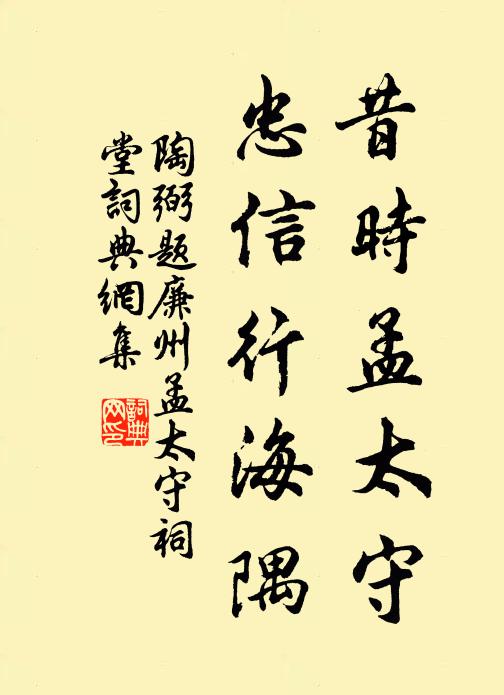 昔時孟太守
忠信行海隅
陶弼题廉州孟太守祠
堂詞典網集
詞典網印